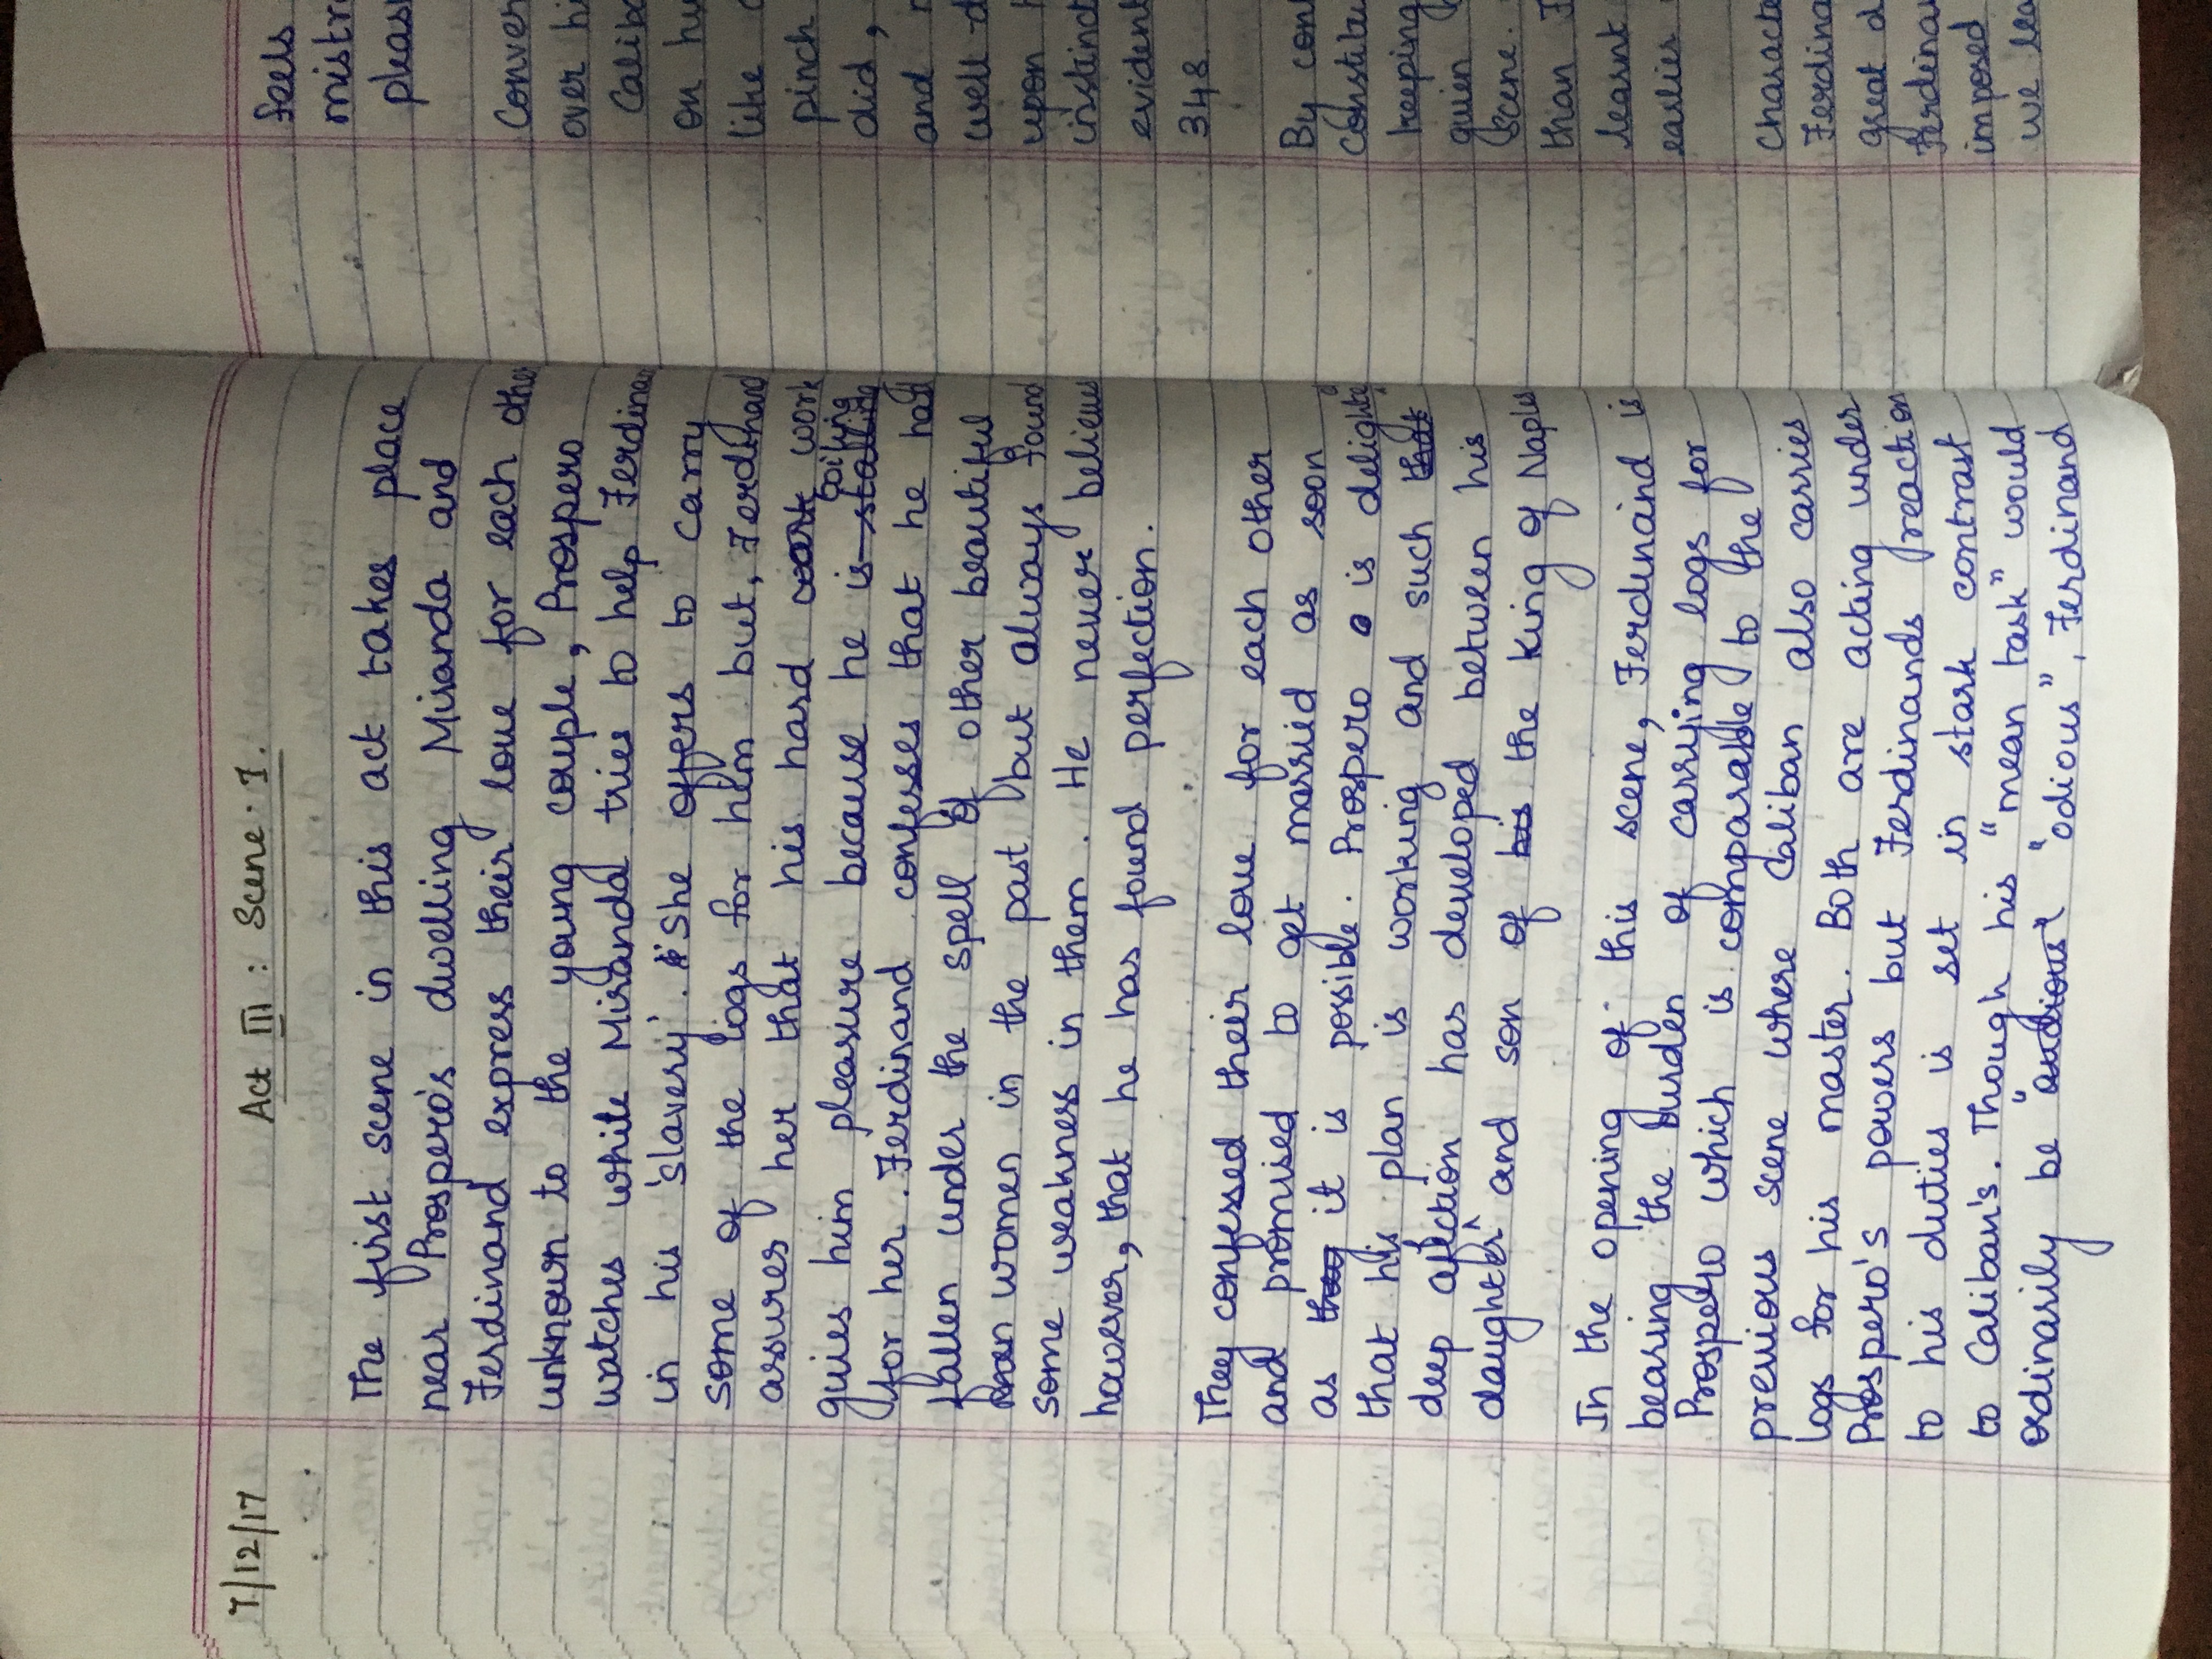 7/12/17
Act III : Scene · I.
The first scene in this act takes place
near Prospero's dwelling Miranda and
Ferdinand express their love for each other
unknown to the young couple, Prospero
watches while Miranda tries to help Ferdinan
in his 'slavery'. She offers to carry
some of the logs for him but, Ferdinand
assures her that his hard work work
gives him pleasure because he is stalling toiling
for her. Ferdinand confesses that he had
fallen under the spell of other beautiful
women in the past but always found
some weakness in them. He never believes
however, that he has found perfection.
They confessed their love for each other
and promised to get married as soon
as they it is possible. Prospero is delighted
that his plan is working and such that
deep affection has developed between his
daughter and son of his the King of Naples
In the opening of this scene, Ferdinand is
bearing the burden of carrying logs for
Prospero which is comparable to the
previous scene where Caliban also carries
logs for his master. Both are acting under
Prospero's powers but Ferdinands reaction
to his duties is set in stark contrast
to Caliban's. Though his "mean task" would
ordinarily be "audious" "odious", Ferdinand
feels
mistr
pleas
Conver
over hi
Caliba
on hu
like
pinch
did,
and
well-d
upon
instinct
evident
348
By con
Constitu
keeping
given
scene.
than F
learnt
earlier
Characte
Ferdina
great d
Ferdina
imposed
we lea